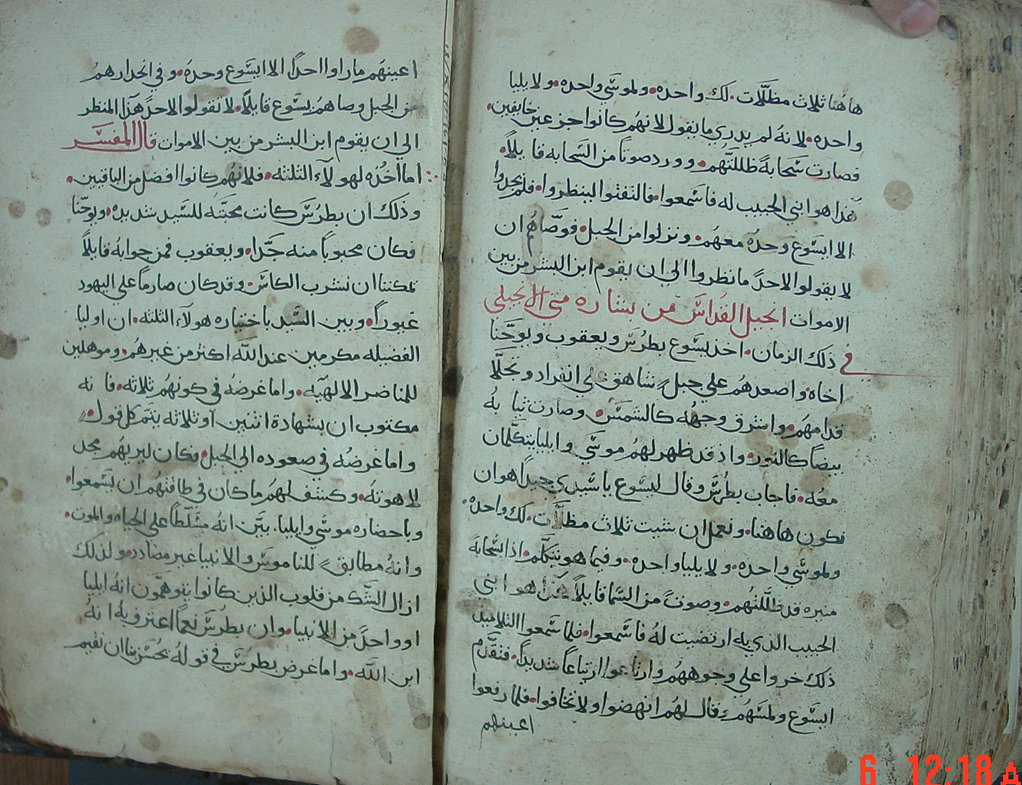 هاهنا ثلاث مظلات. لك واحده. ولموسي واحده. ولايليا
واحده. لانه لم يدري ما يقول لانهم كانوا جزعين خايفين.
فصارت سحابة ظللتهم. وورد صوتا من السحابه قايلا.
هذا هو ابني الحبيب له فاسمعوا. فالتفتوا لينظروا. فلم يجدوا
الا ايسوع وحده معهم. ونزلوا من الجبل. فوصاهم ان
لا يقولوا لاحد ما نظروا الي ان يقوم ابن البشر من بين
الاموات انجيل القداس من بشاره متي الانجيلي
في ذلك الزمان. اخذ يسوع بطرس ويعقوب ويوحنا
اخاه واصعدهم علي جبل شاهق علي انفراد وتجلا
قدامهم. واشرق وجهه كالشمس. وصارت ثيابه
بيضا كالنور. واذ قد ظهر لهم موسي وايليا يتكلمان
معه. فاجاب بطرس وقال ليسوع يا سيدي جيدا هو ان
نكون هاهنا. ونعمل ان شيت ثلاث مظلات. لك واحده.
ولموسي واحده. ولايليا واحده. وفيما هو يتكلم. اذا سحابة
منيره قد ظللتهم. وصوت من السما قايلا هذا هو ابني
الحبيب الذي به ارتضيت له فاسمعوا. فلما سمعوا التلاميذ
ذلك خروا علي وجوههم وارتاعوا ارتياعا شديدا. فتقدم
ايسوع ولمسهم. وقال لهم انهضوا ولا تخافوا. فلما رفعوا
اعينهم
اعينهم ما راوا احدا الا ايسوع وحده. وفي انحدارهم
من الجبل وصاهم يسوع قايلا. لا تقولوا لاحد هذا المنظر
الي ان يقوم ابن البشر من بين الاموات قال المفسر
اما اخذه لهولاء الثلثه. فلانهم كانوا افضل من الباقيين.
وذلك ان بطرس كانت محبته للسيد شديده. ويوحنا
فكان محبوبا منه جدا. ويعقوب فمن جوابه قايلا
تمكننا ان نشرب الكاس. وقد كان صارما علي اليهود
غيورا. وبين السيد باختياره هولاء الثلثه. ان اوليا
الفضيله مكرمين عند الله اكثر من غيرهم. وموهلين
للمناصر الالهيه. واما غرضه في كونهم ثلاثه. فانه
مكتوب ان بشهادة اثنين او ثلاثه يتم كل قول.
واما غرضه في صعوده الي الجبل. فكان ليريهم مجد
لاهوته. وكشف لهم ما كان في طاقتهم ان يسمعوا.
وباحضاره موسي وايليا. بين انه متسلطا علي الحياه والموت.
وانه مطابق للناموس والانبيا غير مضادد. ولذلك
ازال الشك من قلوب الذين كانوا يتوهمون انه ايليا
او واحد من الانبيا. وان بطرس نعما اعترف به انه
ابن الله. واما غرض بطرس في قوله يحسن بنا ان نقيم
6 12:18